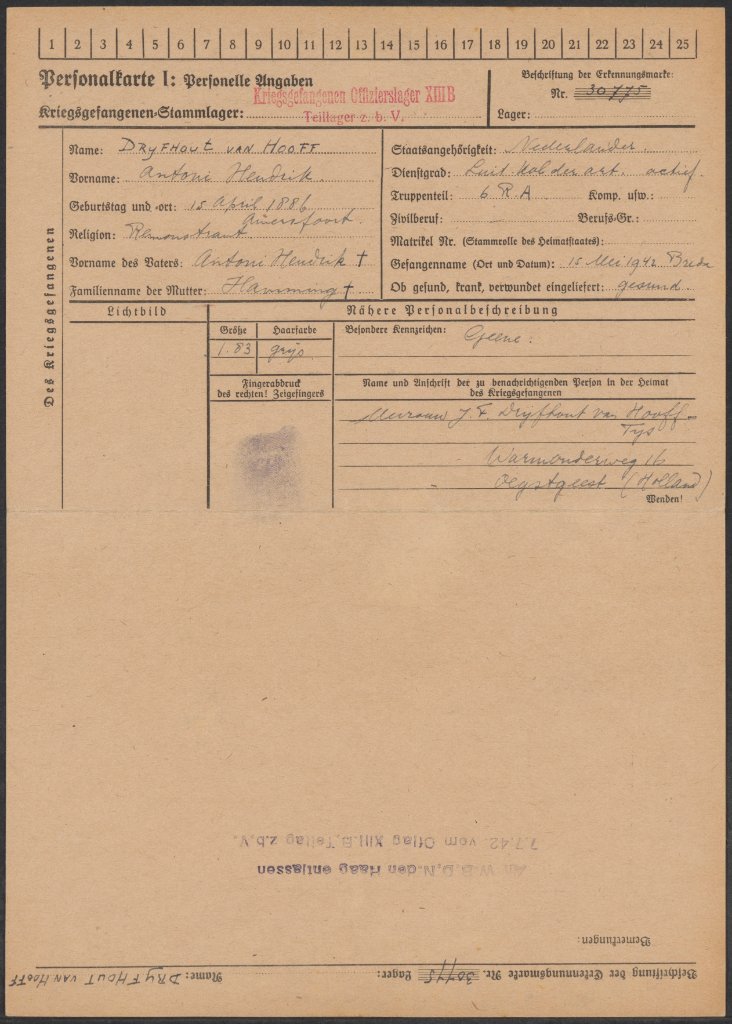 1 2 3 4 5 6 7 8 9 10 11 12 13 14 15 16 17 18 19 20 21 22 23 24 25
Personalkarte I: Personelle Angaben
Kriegsgefangenen-Stammlager:
Kriegsgefangenen Offizierslager XIII B
Teillager z. b. V.
Beschriftung der Erkennungsmarke:
Nr. 30775
Lager:
Des Kriegsgefangenen
Name: DRYFHOUT VAN HOOFF
Vorname: Antoni Hendrik
Geburtstag und -ort: 15 April 1886
Amersfoort.
Religion: Remonstrant
Vorname des Vaters: Antoni Hendrik †
Familienname der Mutter: Hamming †
Staatsangehörigkeit: Nederlander.
Dienstgrad: Luit Kol der art. actief.
Truppenteil: 6 R A Komp. usw.:
Zivilberuf: Berufs-Gr.:
Matrikel Nr. (Stammrolle des Heimatstaates):
Gefangenname (Ort und Datum): 15 Mei 1942 Breda
Ob gesund, krank, verwundet eingeliefert: gesund.
Lichtbild
Nähere Personalbeschreibung
Größe
1.83
Haarfarbe
grijs
Besondere Kennzeichen: Geene.
Fingerabdruck
des rechten! Zeigefingers
Name und Anschrift der zu benachrichtigenden Person in der Heimat
des Kriegsgefangenen
Mevrouw J. F. Dryfhout van Hooff-
Tys
Warmonderweg 16
Oegstgeest (Holland)
Wenden!
Beschriftung der Erkennungsmarke Nr. 30775 Lager: Name: DRYFHOUT VAN HOOFF
Bemerkungen:
An W.B.D.N. den Haag entlassen
7.7.42. vom Oflag XIII.B, Teilag z.b.V.